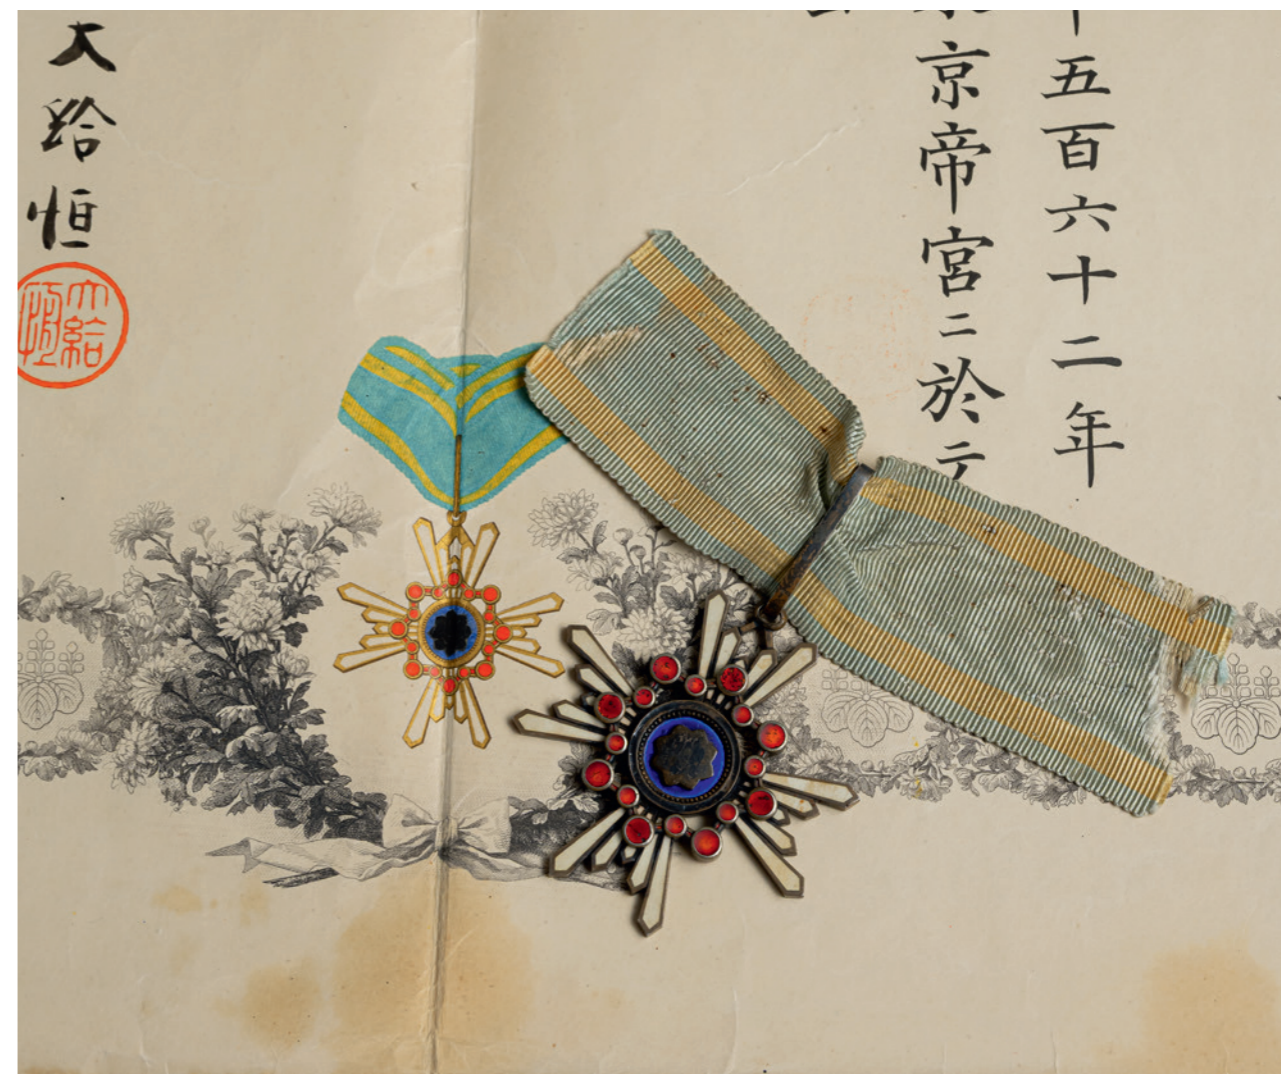 五百六十二年
京帝宮ニ於テ
大給恒
大給恒